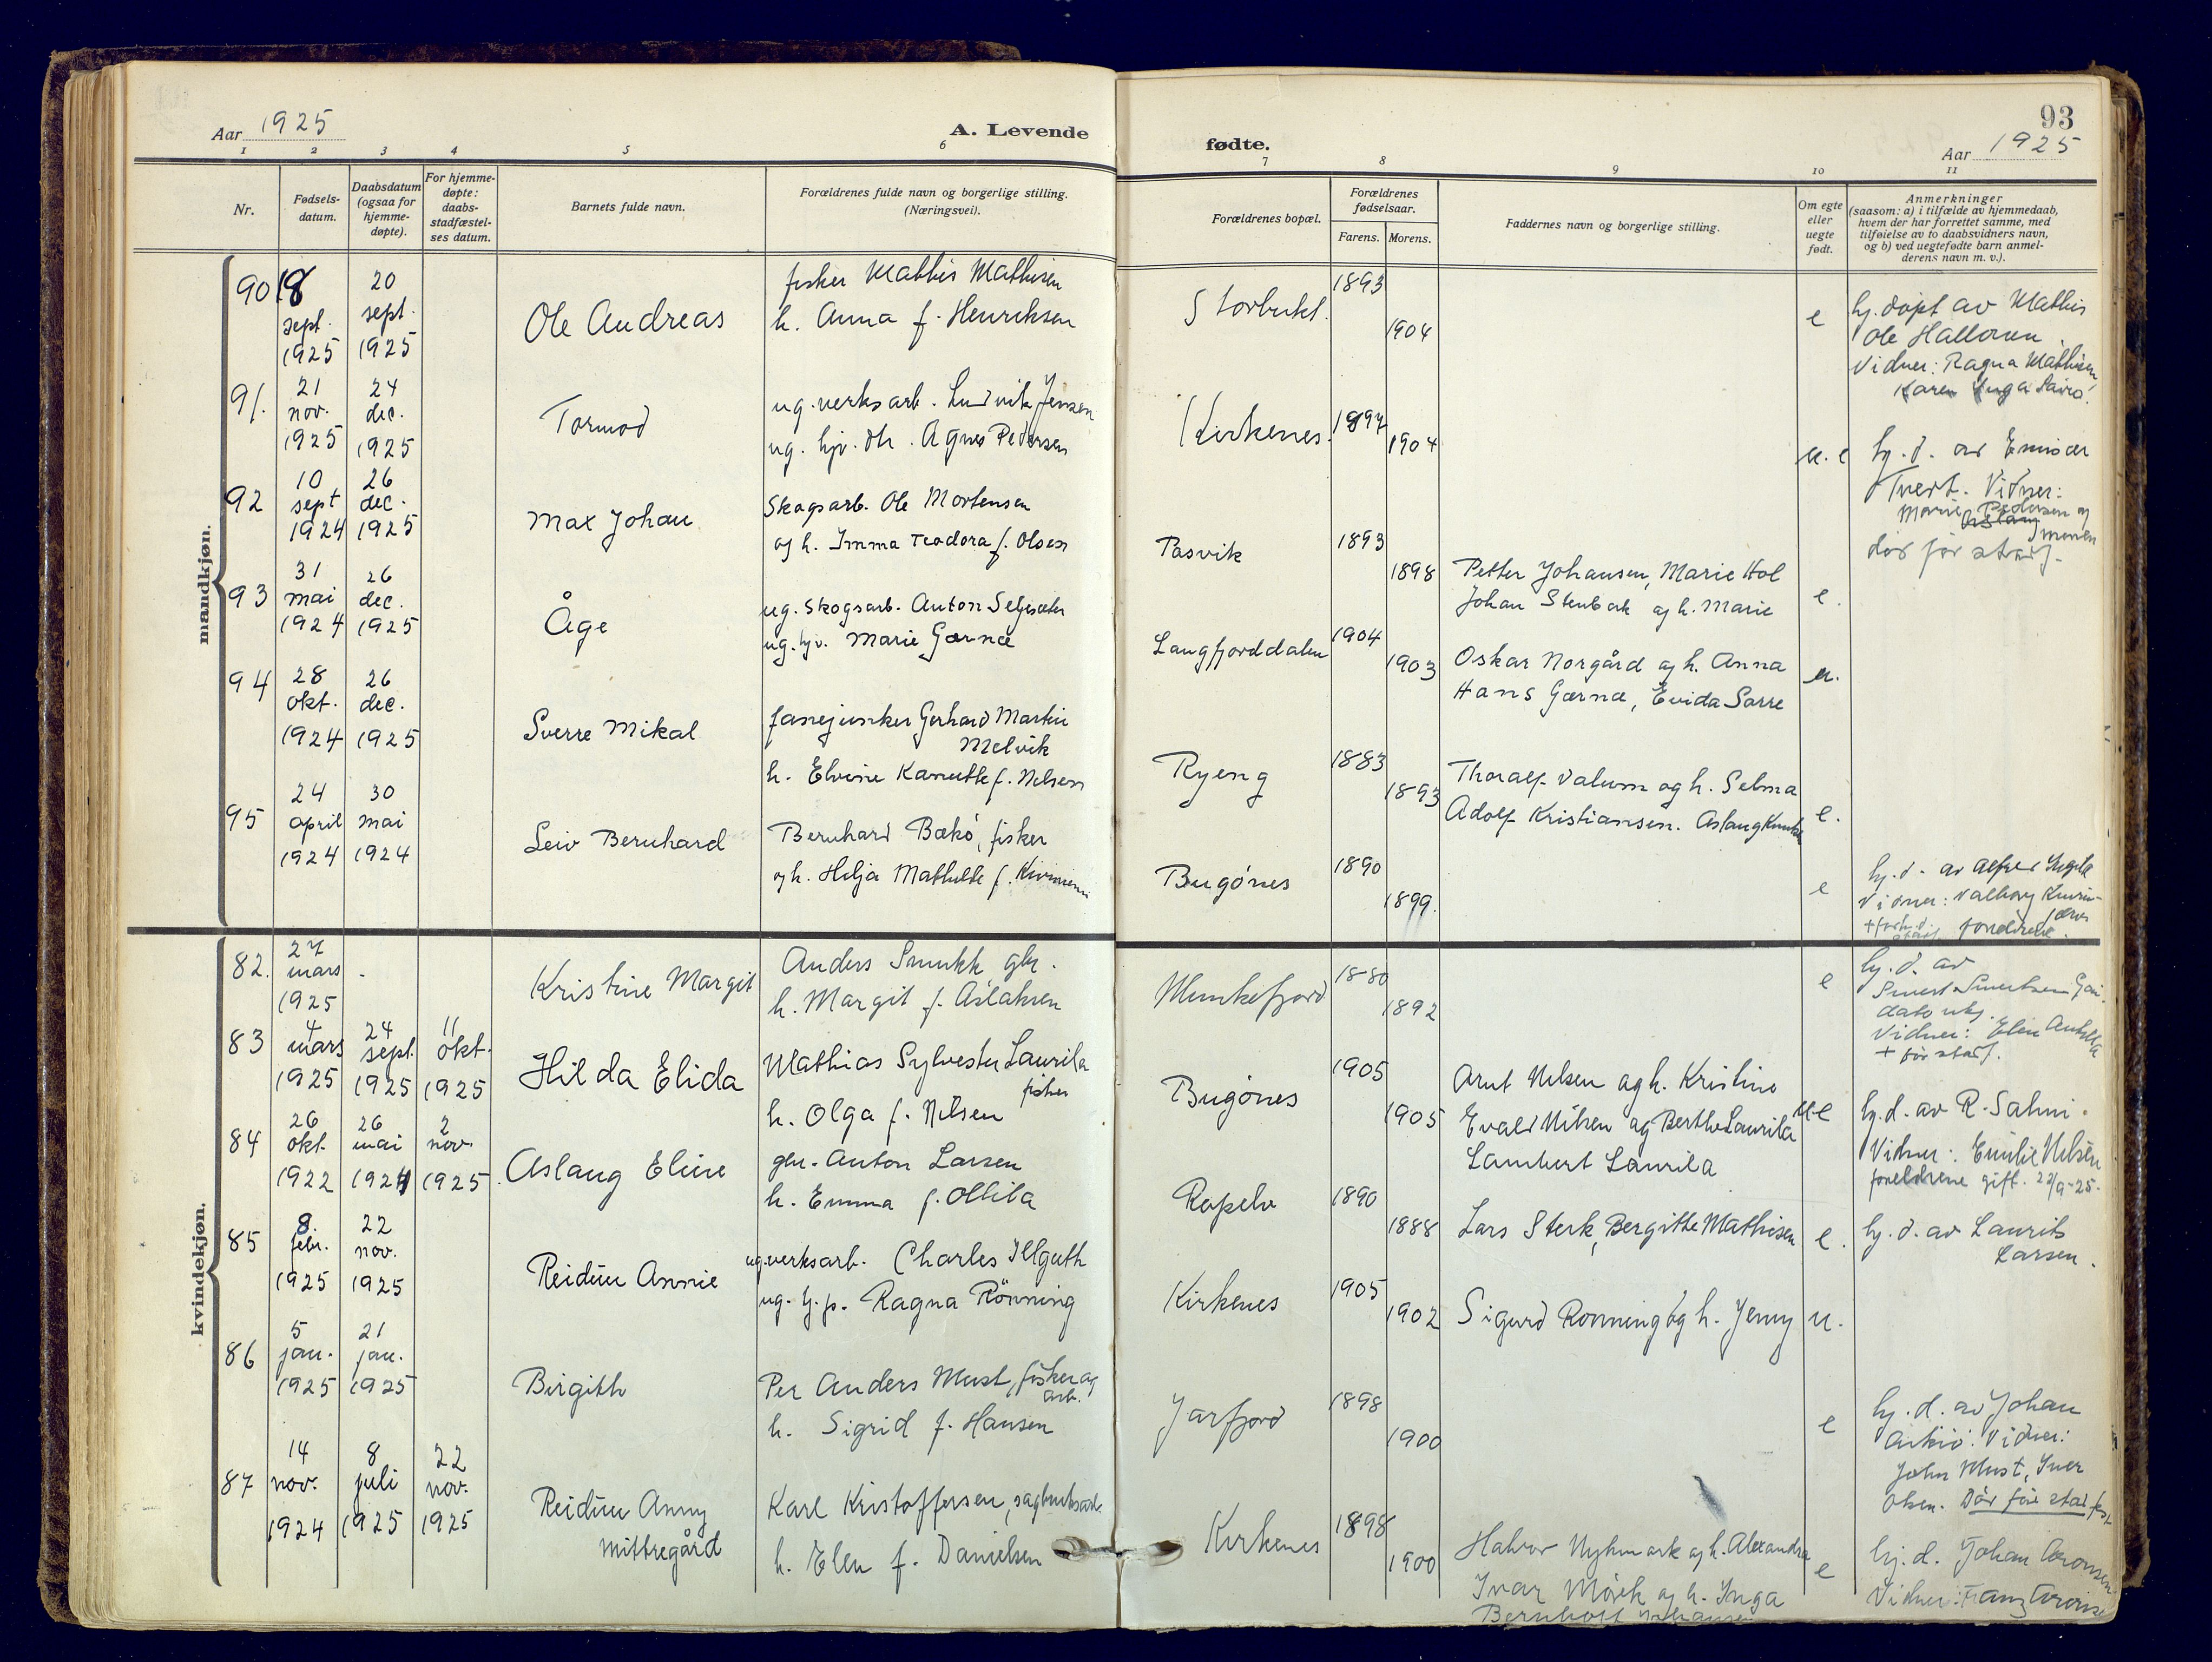 Aar 1925
A. Levende
1 2 3 4 5 6
Nr.
Fødsels-
datum.
Daabsdatum
(ogsaa for
hjemme-
døpte).
For hjemme-
døpte:
daabs-
stadfæstel-
ses datum.
Barnets fulde navn.
Forældrenes fulde navn og borgerlige stilling.
(Næringsvei).
mandkjøn.
90 18 20
sept. sept.
1925 1925
Ole Andreas
fisker Mathis Mathisen
h. Anna f. Henriksen
91. 21 24
nov. dec.
1925 1925
Tormod
ug. verksarb. Ludvik Jensen
ug. hjv. dtr. Agnes Pedersen
92 10 26
sept dec.
1924 1925
Max Johan
Skogsarb. Ole Mortensen
og h. Imma Teodora f. Olsen
93 31 26
mai dec.
1924 1925
Åge
ug. Skogsarb. Anton
ug. hjv. Marie Gærnæ
94 28 26
okt. dec.
1924 1925
Sverre Mikal
fanejunker Gerhard Martin
Melvik
h. Elvine Kanutte f. Nilsen
95 24 30
april mai
1924 1924
Leiv Bernhard
Bernhard Bækö, fisker
og h. Hilja Mathilde f.
kvindekjøn.
82. 27
mars -
1925
Kristine Margit
Anders Smukk gbr.
h. Margit f. Aslaksen
83 4 24 11
mars sept. okt.
1925 1925 1925
Hilda Elida
Mathias Sylvester Laurila
fisker
h. Olga f. Nilsen
84 26 26 2
okt. mai nov.
1922 1924 1925
Aslaug Eline
gbr. Anton Larsen
h. Emma f. Ollila
85 8. 22
febr. nov.
1925 1925
Reidun Annie
ug. verksarb. Charles Illguth
ug. hj.p. Ragna Rönning
86 5 21
jan. jan.
1925 1925
Birgith
Per Anders Must, fisker og
arb.
h. Sigrid f. Hansen
87 14 8 22
nov. juli nov.
1924 1925 1925
Reidun Anny
Mittregård
Karl Kristoffersen, sagbruksarb.
h. Elen f. Danielsen
93
fødte.
Aar 1925
7 8 9 10 11
Forældrenes bopæl.
Forældrenes
fødselsaar.
Farens. Morens.
Faddernes navn og borgerlige stilling.
Om egte
eller
uegte
født.
Anmerkninger
(saasom: a) i tilfælde av hjemmedaab,
hvem der har forrettet samme, med
tilføielse av to daabsvidners navn,
og b) ved uegtefødte barn anmel-
derens navn m. v.).
Storbukt. 1893
1904
e
hj. døpt av Mathis
Ole Halloren.
Vidner: Ragna Mathisen,
Karen Inga
Kirkenes. 1897
1904
u.e
hj. d. av
Vidner:
Marie Pedersen og
død før stadf.
Pasvik 1893
1898
Petter Johansen, Marie Hol
Johan Stenbak og h. Marie
e.
Langfjorddalen 1904
1903
Oskar Norgård og h. Anna
Hans Gærnæ, Evida Sarre
u.
Ryeng 1883
1893
Thoralf Valum og h. Selma
Adolf Kristiansen. Aslaug
e.
Bugönes 1890
1899.
e
hj. d. av Alfred Ingila
Vidner: Valborg
foreldrene.
Munkefjord 1880
1892
e
hj. d. av
dato ubj.
Vidner: Elen
+ før stadf.
Bugönes 1905
1905
Arnt Nilsen og h. Kristine
Evald Nilsen og Berthe Laurila
Lambert Laurila
u-e
hj. d. av R. Salmi.
Vidner: Emilie Nilsen
foreldrene gift. 22/9-25.
Ropelv 1890
1888
Lars Sterk, Bergitte Mathisen
e.
hj. d. av Laurits
Larsen.
Kirkenes 1905
1902
Sigurd Rönning og h. Jenny
u.
Jarfjord 1898
1900
e
hj. d. av Johan
Arkio. Vidner:
John Must, Iver
Olsen. Död före stadfest
Kirkenes 1898
1900
Halvor Nyhmark og h. Alexandra
Ivar Mörk og h. Inga
Bernhoft Johansen
e
hj. d. Johan Aronsen
Vidner: Franz Aronse